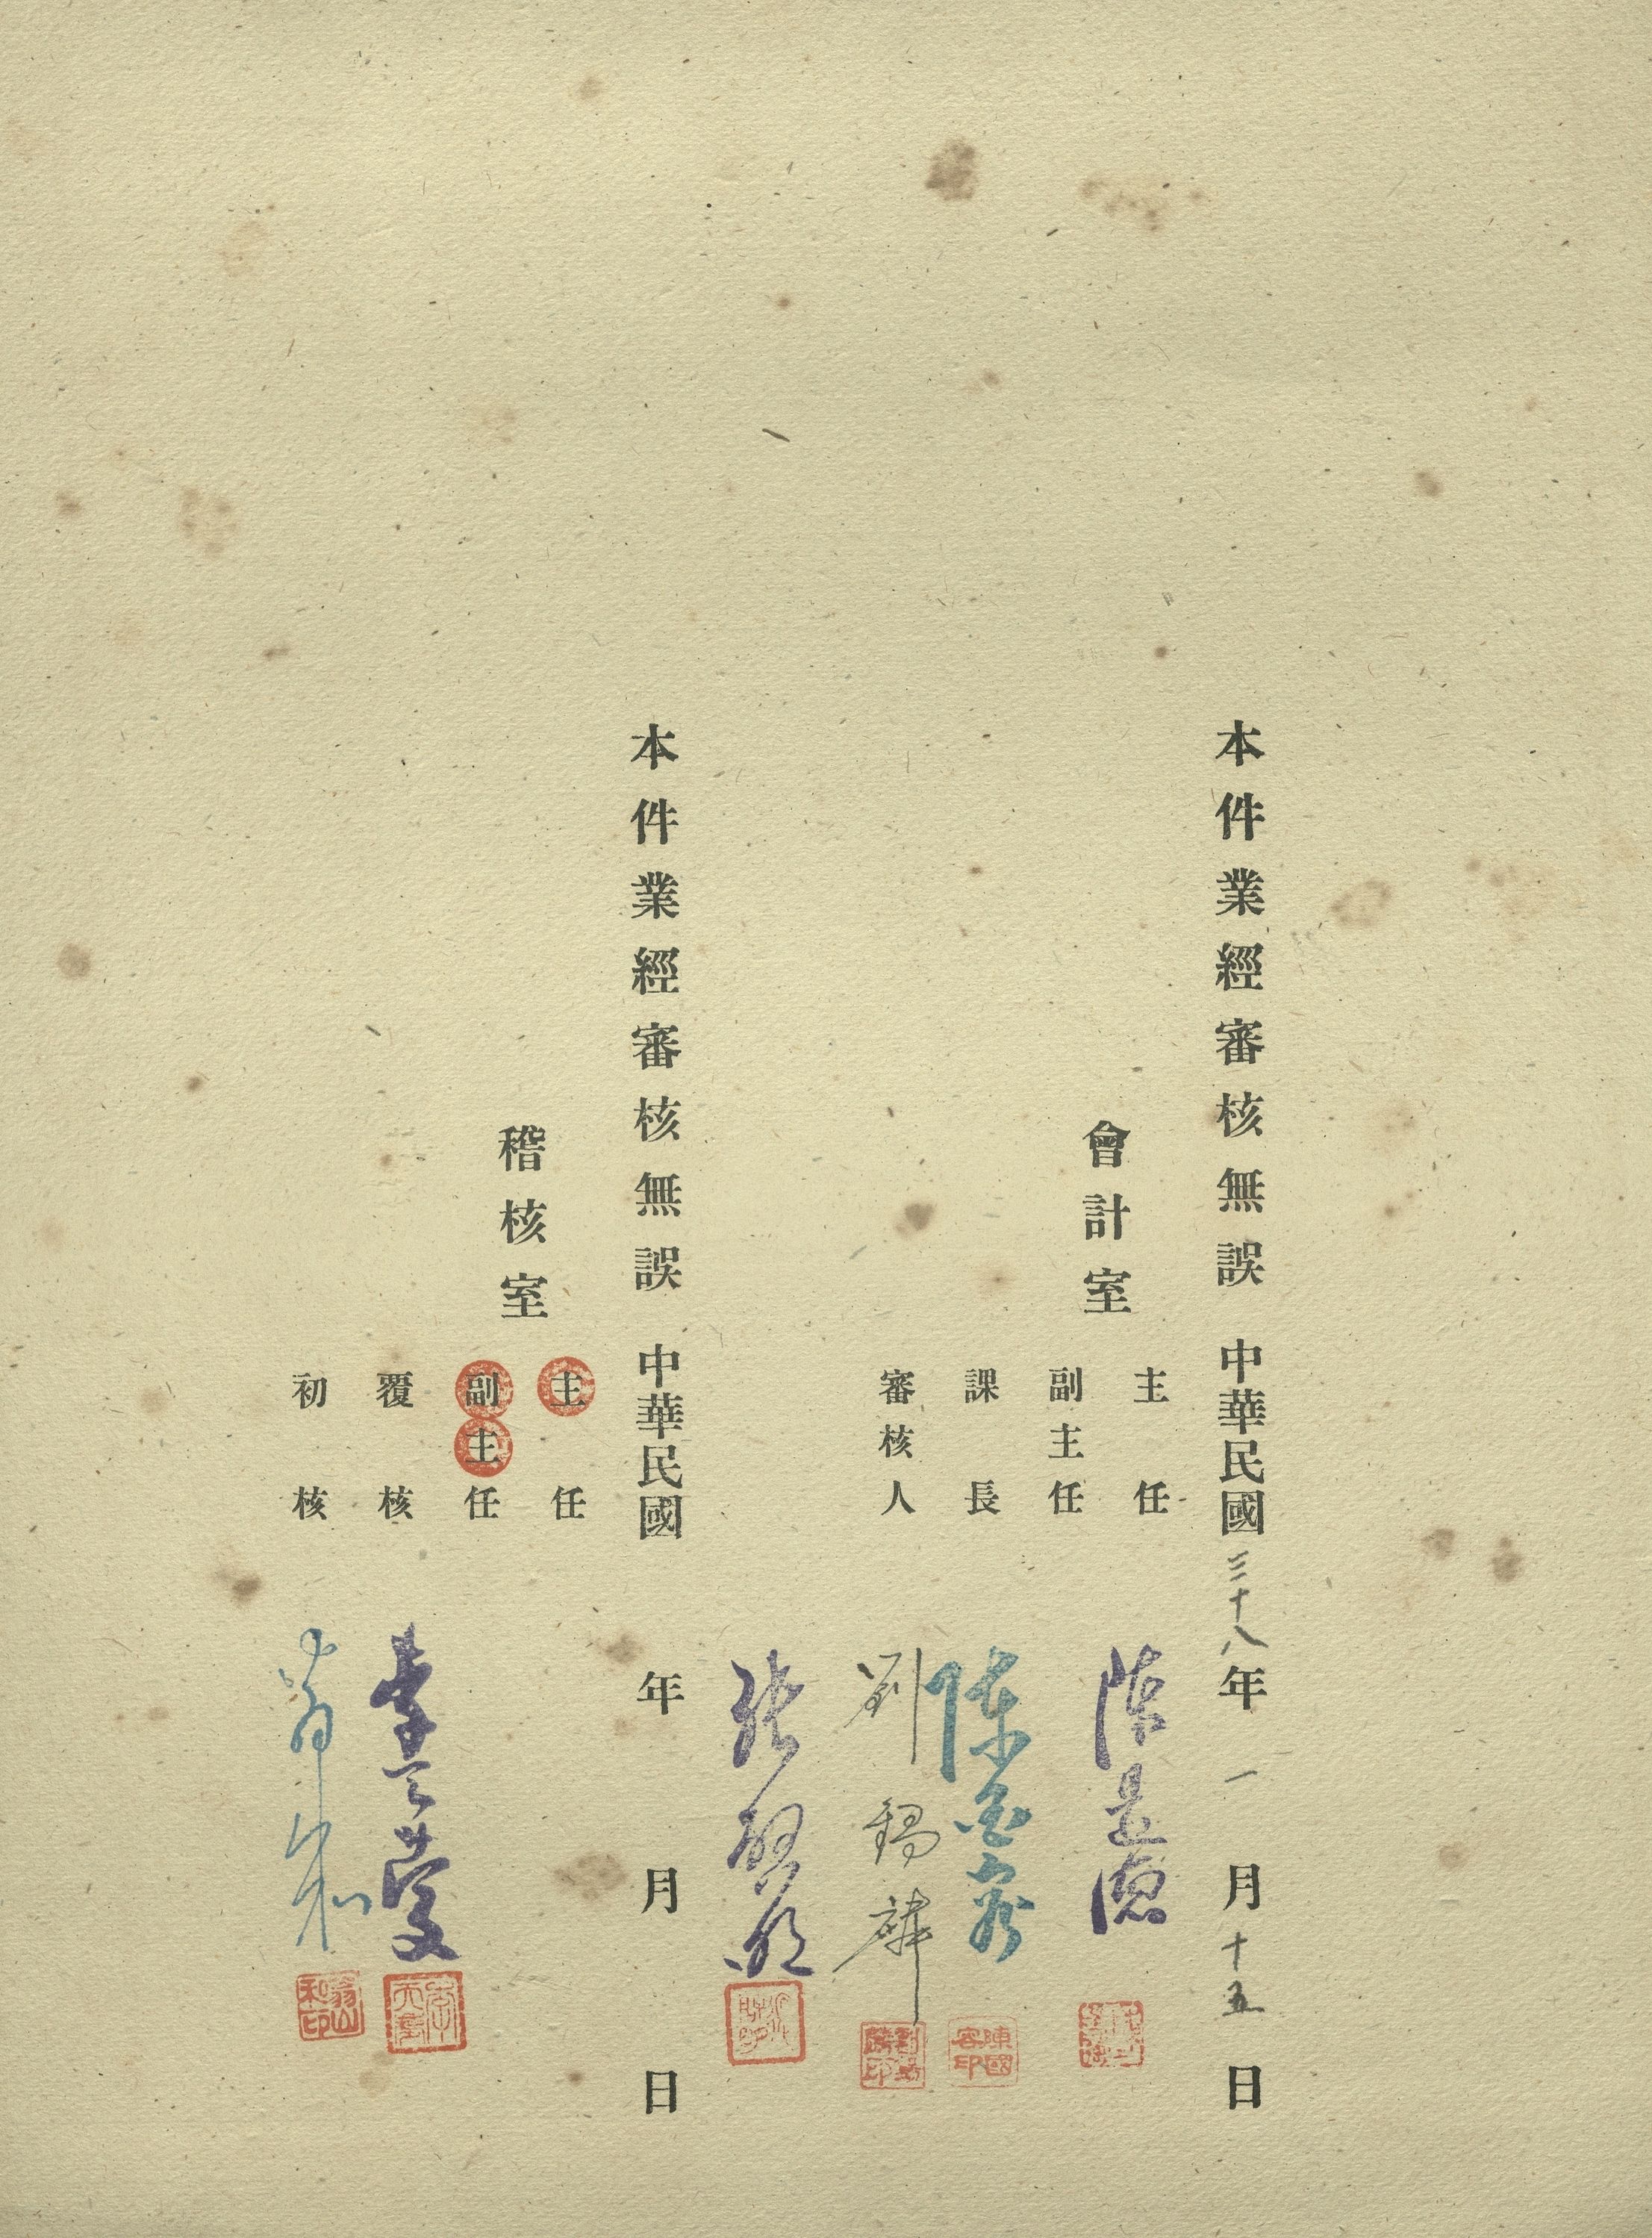 本件業經審核無誤 中華民國三十八年一月十五日
會計室
主任
副主任
課長 陳國容
審核人 劉錫麟
陳國容印
本件業經審核無誤 中華民國 年 月 日
稽核室
主任
副主任
覆核
初核